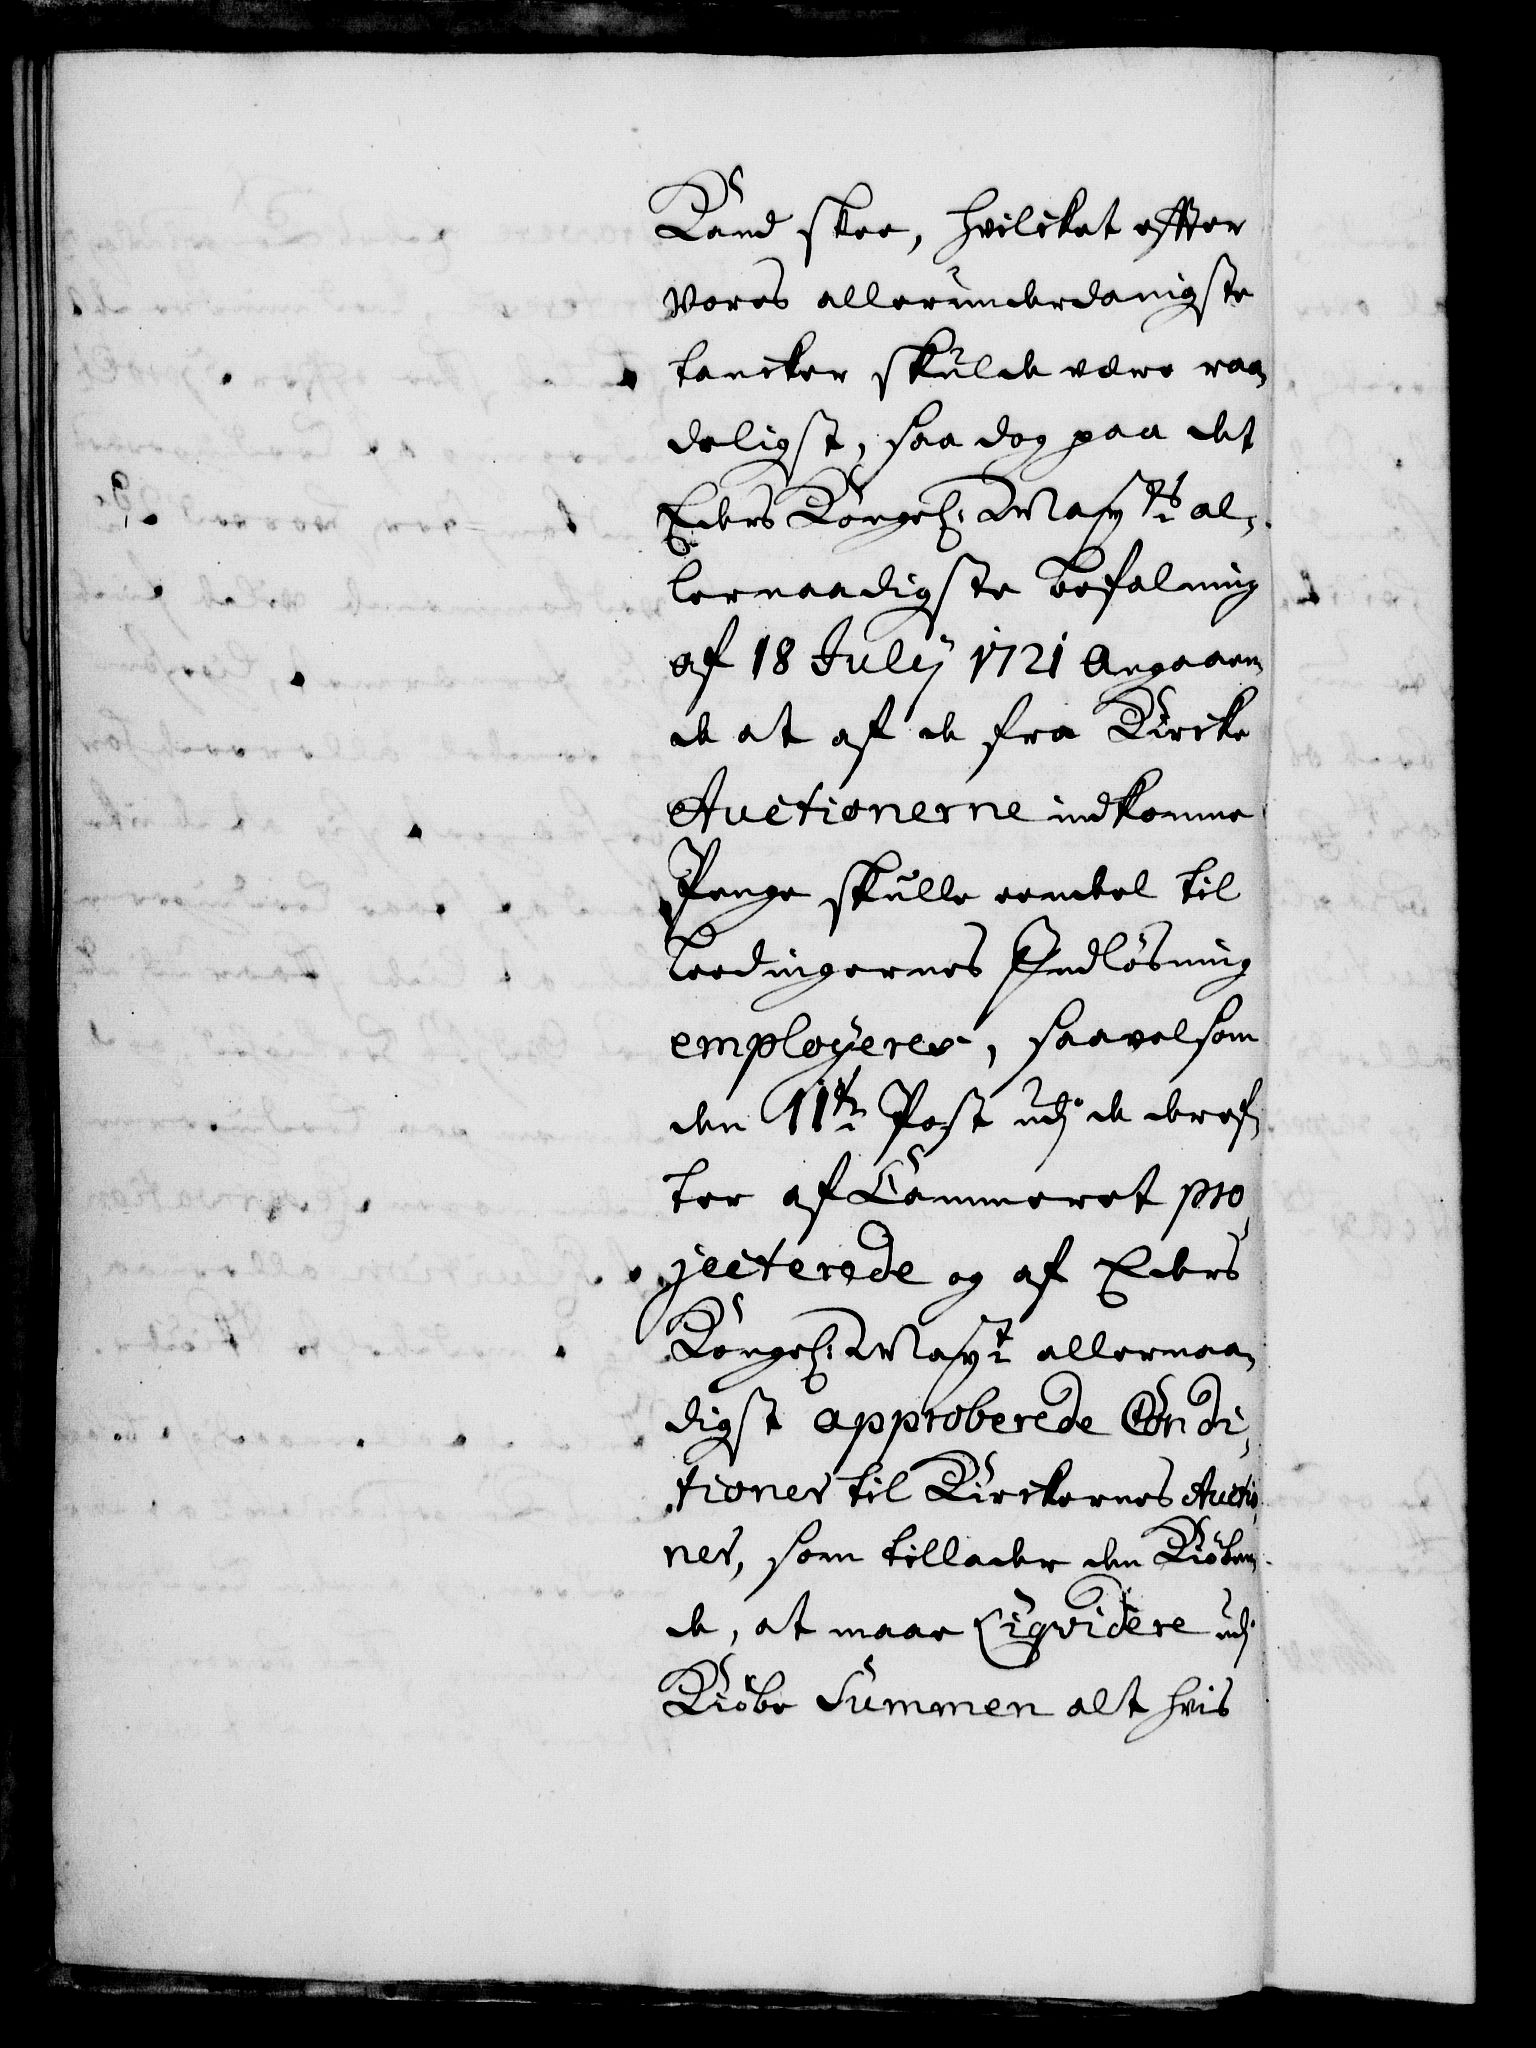 Kand skee, hvilcket effter
vores allerunderdanigste
tancker skulde være raa-
deligst, saa dog paa det
Eders Kongel: Mayts al-
lernaadigste befalning
af 18 July 1721 Angaaen-
de at af de fra Kircke
Auctionerne indkomne
Penge skulle eendel til
Leedingernes Indlösning
employeres, saavelsom
den 11te Post udj de deref-
ter af Cammeret pro-
jecterede og af Eders
Kongel: Mayt allernaa-
digst approberede Condi-
tioner til Kirckernes Auctio-
ner, som tillader den Kiöben-
de, at maae Liqvidere udj
Kiöbe Summen alt hvis